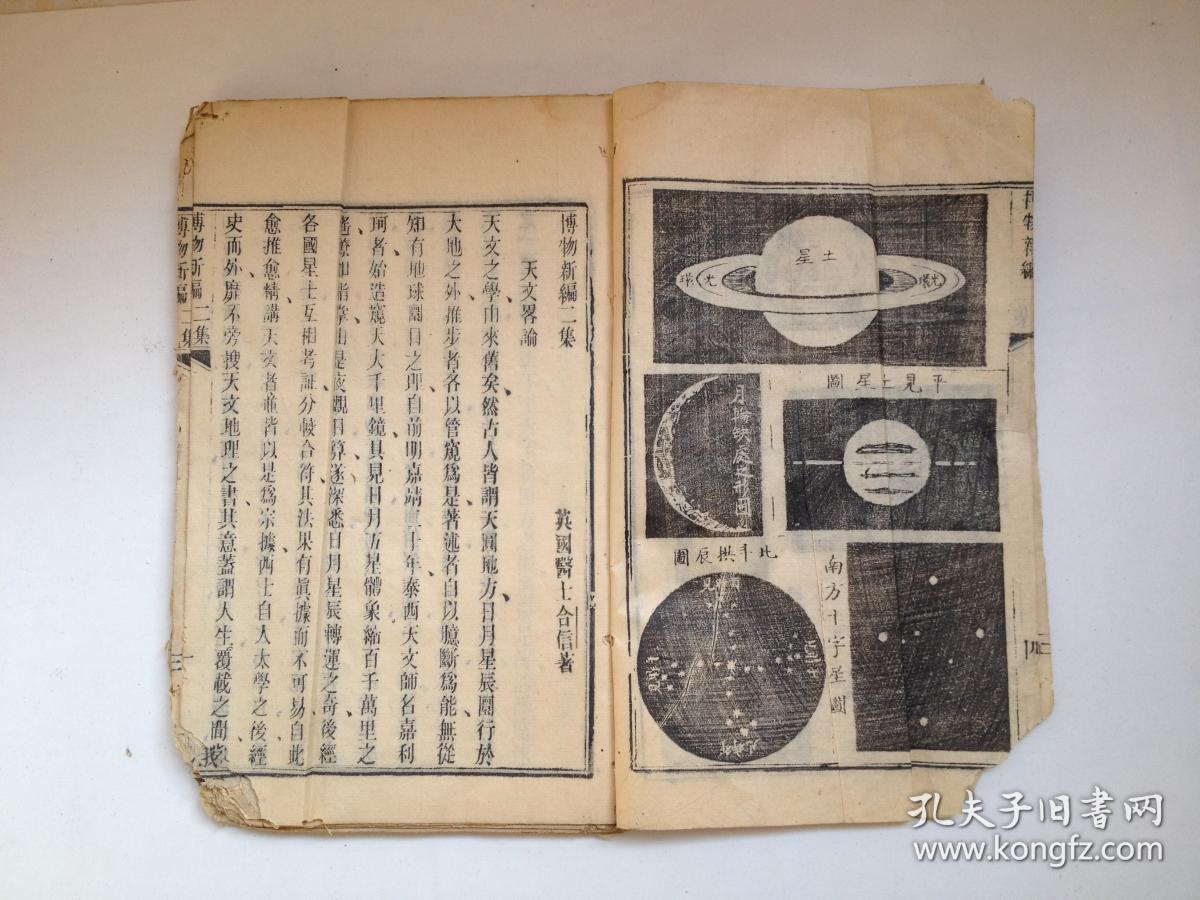 博物新編
土星
光環
光環
平見土星圖
月輪缺處之形圖
北斗拱辰圖
南方十字星圖
博物新編二集
天文畧論
英國醫士合信著
天文之學由來舊矣、然古人皆謂天圓地方日月星辰圜行於
大地之外推步者各以管窺爲是著述者自以臆斷爲能無從
知有地球圜日之理自前明嘉靖 十年、泰西天文師名嘉利
珂者始造窺天大千里鏡具見日月五星體象縮百千萬里之
遙瞭如指掌由是夜觀日算遂深悉日月星辰轉運之奇後經
各國星士互相考証分較合符其法果有眞據而不可易自此
愈推愈精講天文者並皆以是爲宗據西士自人太學之後經
史而外靡不旁搜天文地理之書其意蓋謂人生覆載之間
博物新編二集
博物新編二集
孔夫子旧书网
www.kongfz.com